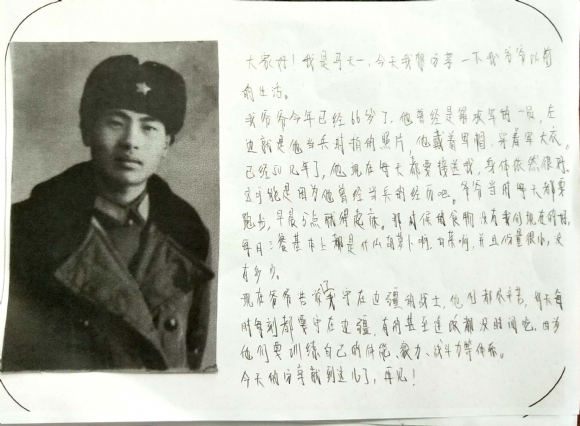 大家好！我是马天一，今天我想分享一下我爷爷以前
的生活。
我爷爷今年已经66岁了，他曾经是解放军的一员，左
边就是他当兵时拍的照片，他戴着军帽，穿着军大衣。
已经50几年了，他现在每天都要接送我，身体依然很好。
这可能是因为他曾经当兵的经历吧。爷爷当时每天都要
跑步，早晨5点就得起床。那时候的食物没有我们现在的好，
每日三餐基本上都是什么胡萝卜啊，白菜啊，并且份量很小，没
有多少。
现在爷爷告诉守在边疆的战士，他们都很辛苦，每天每
时每刻都要守在边疆，有的甚至连饭都没时间吃，因为
他们要训练自己的体能、毅力、战斗力等体系。
今天的分享就到这儿了，再见！